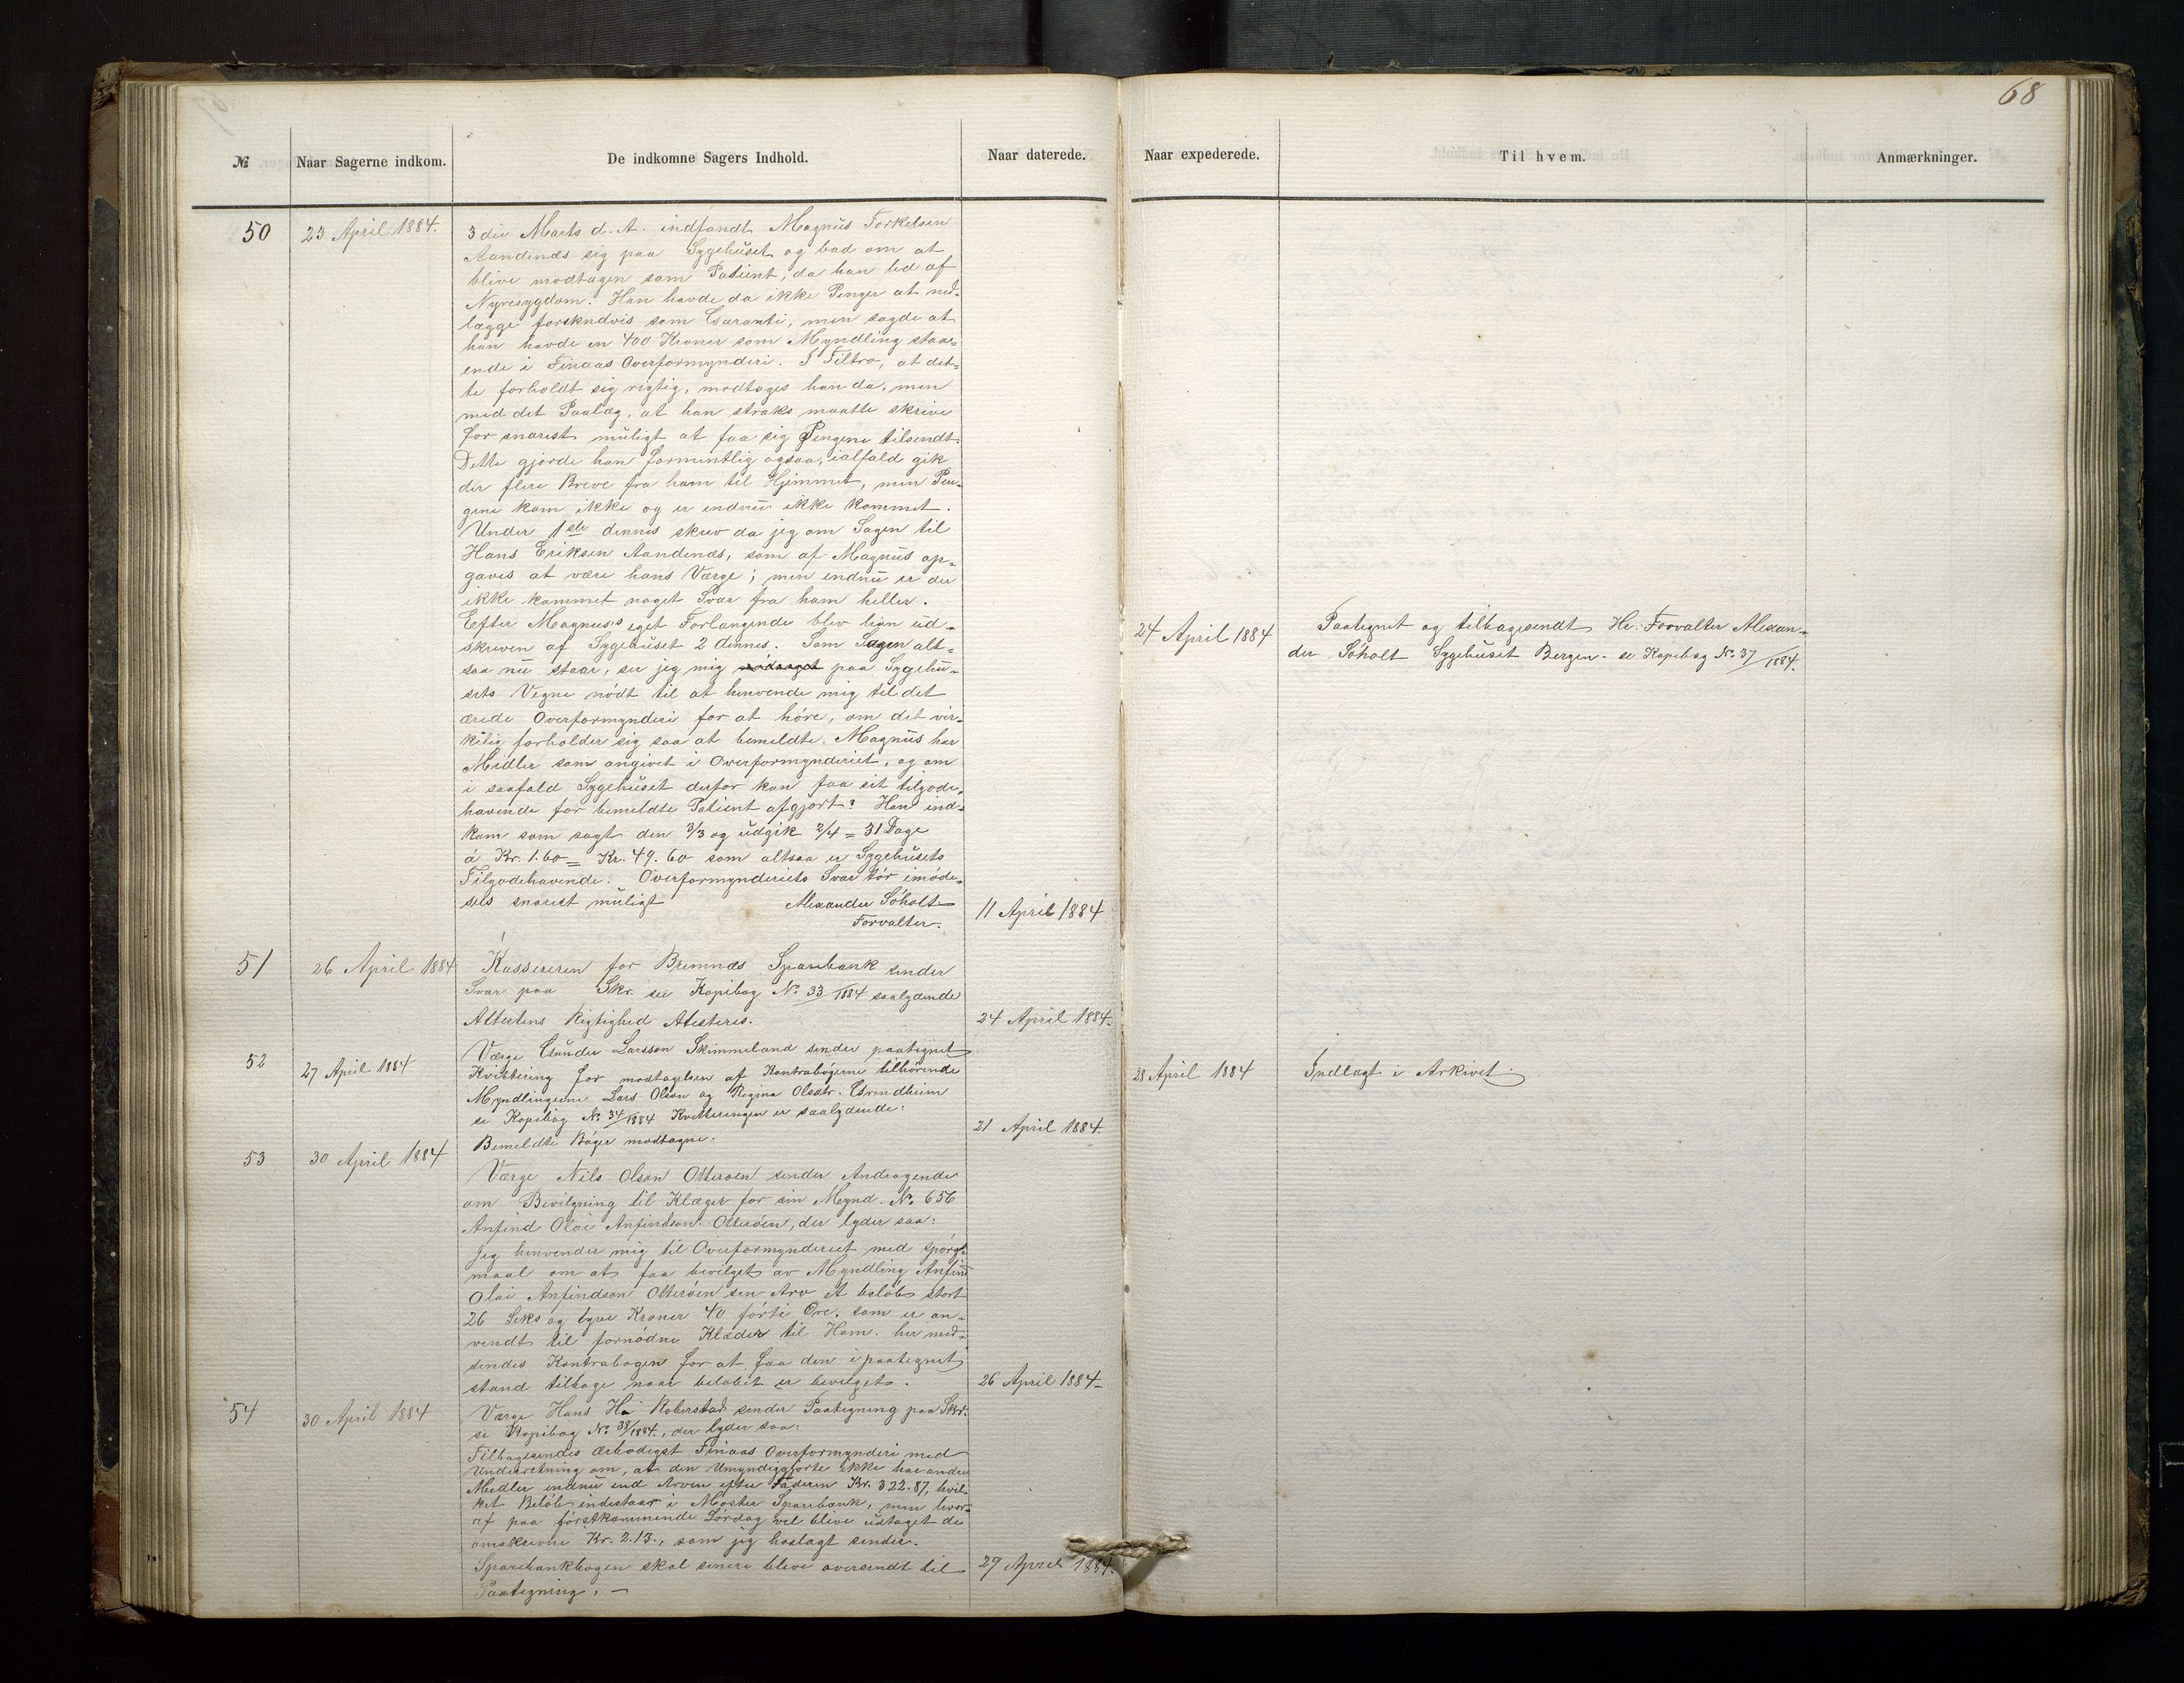 68
№ Naar Sagerne indkom. De indkomne Sagers Indhold. Naar daterede. Naar expederede. Til hvem. Anmærkninger.
50 23 April 1884. 3die Marts d. A. indfandt Magnus Torkelsen
Aandenæs sig paa Sygehuset og bad om at
blive modtagen som Patient, da han led af
Nyresygdom. Han havde da ikke Penger at ned-
lægge forskudvis som Garanti, men sagde at
han havde en 400 Kroner som Myndling staa-
ende i Finaas Overformynderi. I Tiltro, at det-
te forholdt sig rigtig, modtoges han da, men
med det Paalæg, at han straks maatte skrive
for snarest muligt at faa sig Pengene tilsendt.
Dette gjorde han formentlig ogsaa, ialfald gik
der flere Breve fra ham til Hjemmet, men Pen-
gene kom ikke og er endnu ikke kommet.
Under 1ste dennes skrev da jeg om Sagen til
Hans Eriksen Aandenæs, som af Magnus op-
gaves at være hans Værge; men endnu er der
ikke kommet noget Svar fra ham heller.
Efter Magnus's eget Forlangende blev han ud-
skreven af Sygehuset 2 dennes. Som Sagen alt-
saa nu staar, ser jeg mig paa Sygehu-
sets Vegne nødt til at henvende mig til det
ærede Overformynderi for at høre, om det vir-
kelig forholder sig saa at bemeldte Magnus har
Midler som angivet i Overformynderiet, og om
i saafald Sygehuset derfor kan faa sit tilgode-
havende for bemeldte Patient afgjort? Han ind-
kom som sagt den 3/3 og udgik 2/4 = 31 Dage
á Kr. 1.60 = Kr. 49.60 som altsaa er Sygehusets
Tilgodehavende. Overformynderiets Svar tør imøde-
sees snarest muligt Alexander Söholt
Forvalter. 11 April 1884
24 April 1884 Paategnet og tilbagesendt Hr. Forvalter Alexan-
der Söholt Sygehuset Bergen. se Kopibog No. 37/1884.
51 26 April 1884 Kassereren for Bremnæs Sparebank sender
Svar paa Skr. se Kopibog No. 33/1884 saalydende
Attestens Rigtighed Atesteres. 24 April 1884.
52 27 April 1884 Værge Gunder Larsson Skimmeland sender paategnet
Kvittering for modtagelsen af Kontrabøgerne tilhørende
Myndlingerne Lars Olson og Regina Olsdtr. Grendheim
se Kopibog No. 34/1884 Kvitteringen er saalydende:
Bemeldte Bøger modtagne. 21 April 1884.
28 April 1884 Indlagt i Arkivet.
53 30 April 1884 Værge Nils Olson Otterøen sender Andragende
om Bevilgning til Klæger for sin Mynd. No. 656
Anfind Olai Anfindson Otterøen, der lyder saa:
Jeg henvender mig til Overformynderiet med spørgs-
maal om at faa bevilget av Myndling Anfind
Olai Anfindson Otterøen sin Arv et beløb stort
26 Seks og tyve Kroner 40 førti Øre. som er an-
vendt til fornødne Klæder til Ham. her med-
sendes Kontrabogen for at faa den i paategnet
stand tilbage naar beløbet er bevilget. 26 April 1884
54 30 April 1884 Værge Hans Hs. Roberstad sender Paategning paa Skr.
se Kopibog No. 38/1884., der lyder saa:
Tilbagesendes ærbødigst Finaas Overformynderi med
Underretning om, at den Umyndiggjorte ikke har andre
Midler endnu end Arven efter Faderen Kr. 322.87, hvil-
ket Beløb indestaar i Moster Sparebank, men hvor-
af paa førstkommende Lørdag vel blive udtaget de
omskrevne Kr. 2.13., som jeg hoslagt sender.
Sparebankbogen skal senere blive oversendt til
Paategning. — 29 April 1884.